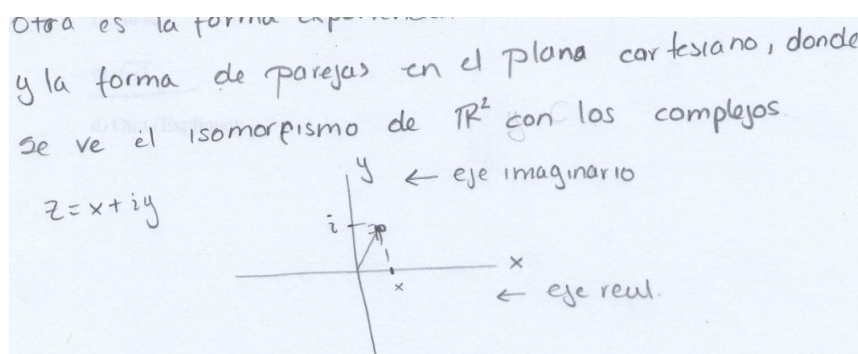 Otra es la forma
y la forma de parejas en el plano cartesiano, donde
se ve el isomorfismo de ℝ² con los complejos.
y ← eje imaginario
z = x + iy
i
x
x
← eje real.